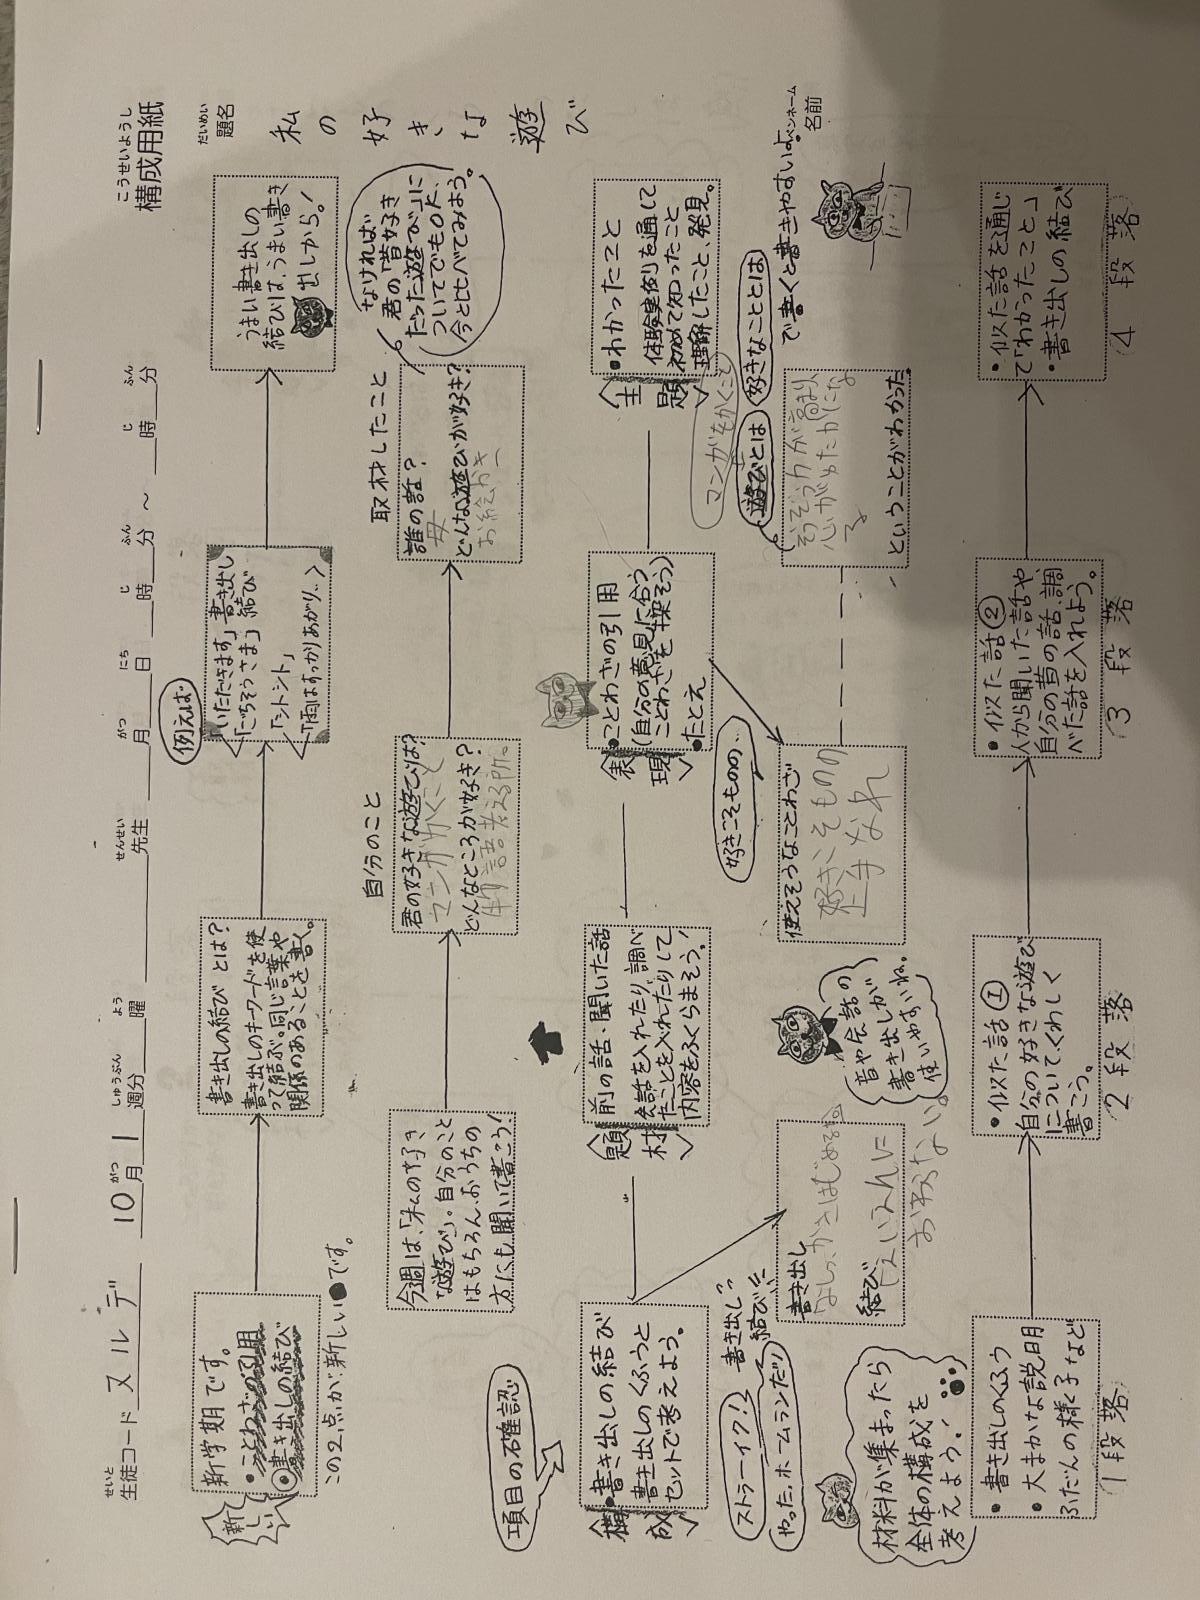 こうせいようし
構成用紙
せいと
生徒コード スルデ 10月 1週分 曜 先生 月 日 時 分 ～ 時 分
がつ しゅうぶん よう せんせい がつ にち じ ふん じ ふん
だいめい
題名
私の好きな遊び
新しい
新学期です。
・ことわざの引用
◉書き出しの結び
この2点が新しい●です。
書き出しの結びとは？
書き出しのキーワードを使
って結ぶ。同じ言葉や
関係のあることを書く。
例えば
「いただきます」書き出し
「ごちそうさま」結び
「トントン」
「雨はすっかりあがり…
うまい書き出しの
結びは、うまい書き
出しから！
今週は、「私の好き
な遊び」。自分のこと
はもちろん、おうちの
方にも聞いて書こう！
自分のこと
君の好きな遊びは？
マンガかくこと
どんなところが好き？
物語考える所。
取材したこと
誰の話？
母
どんな遊びが好き？
お絵かき
なければ
君の「昔好き
だった遊び」に
ついてでもOK、
今と比べてみよう。
項目の確認
〈構成〉
・書き出しの結び
書き出しのくふうと
セットで考えよう。
〈題材〉
前の話・聞いた話
会話を入れたり、調べ
たことを入れたりして
内容をふくらまそう！
〈表現〉
・ことわざの引用
(自分の意見に合う
ことわざを探そう)
・たとえ
〈主題〉
・わかったこと
体験実例を通して
初めて知ったこと
理解したこと、発見。
ストラーイク！？
やった、ホームランだ！
書き出し？
結び!!
書き出し
結び
音や会話の
書き出しが
使いやすいね。
好きこそものの…
使えそうなことわざ
好きこそものの
上手なれ
マンガをかくこと
遊びとは
好きなこととは
で書くと書きやすいよ。
そうぞう力が高まり
心がゆたかにな
る
ということがわかった。
ペンネーム
名前
材料が集まったら
全体の構成を
考えよう！
・書き出しのくふう
・大まかな説明
ふだんの様子など
1段落
・似た話①
自分の好きな遊び
についてくわしく
書こう。
2段落
・似た話②
人から聞いた話や、
自分の昔の話、調
べた話を入れよう。
3段落
・似た話を通じ
て「わかったこと」
・書き出しの結び
4段落